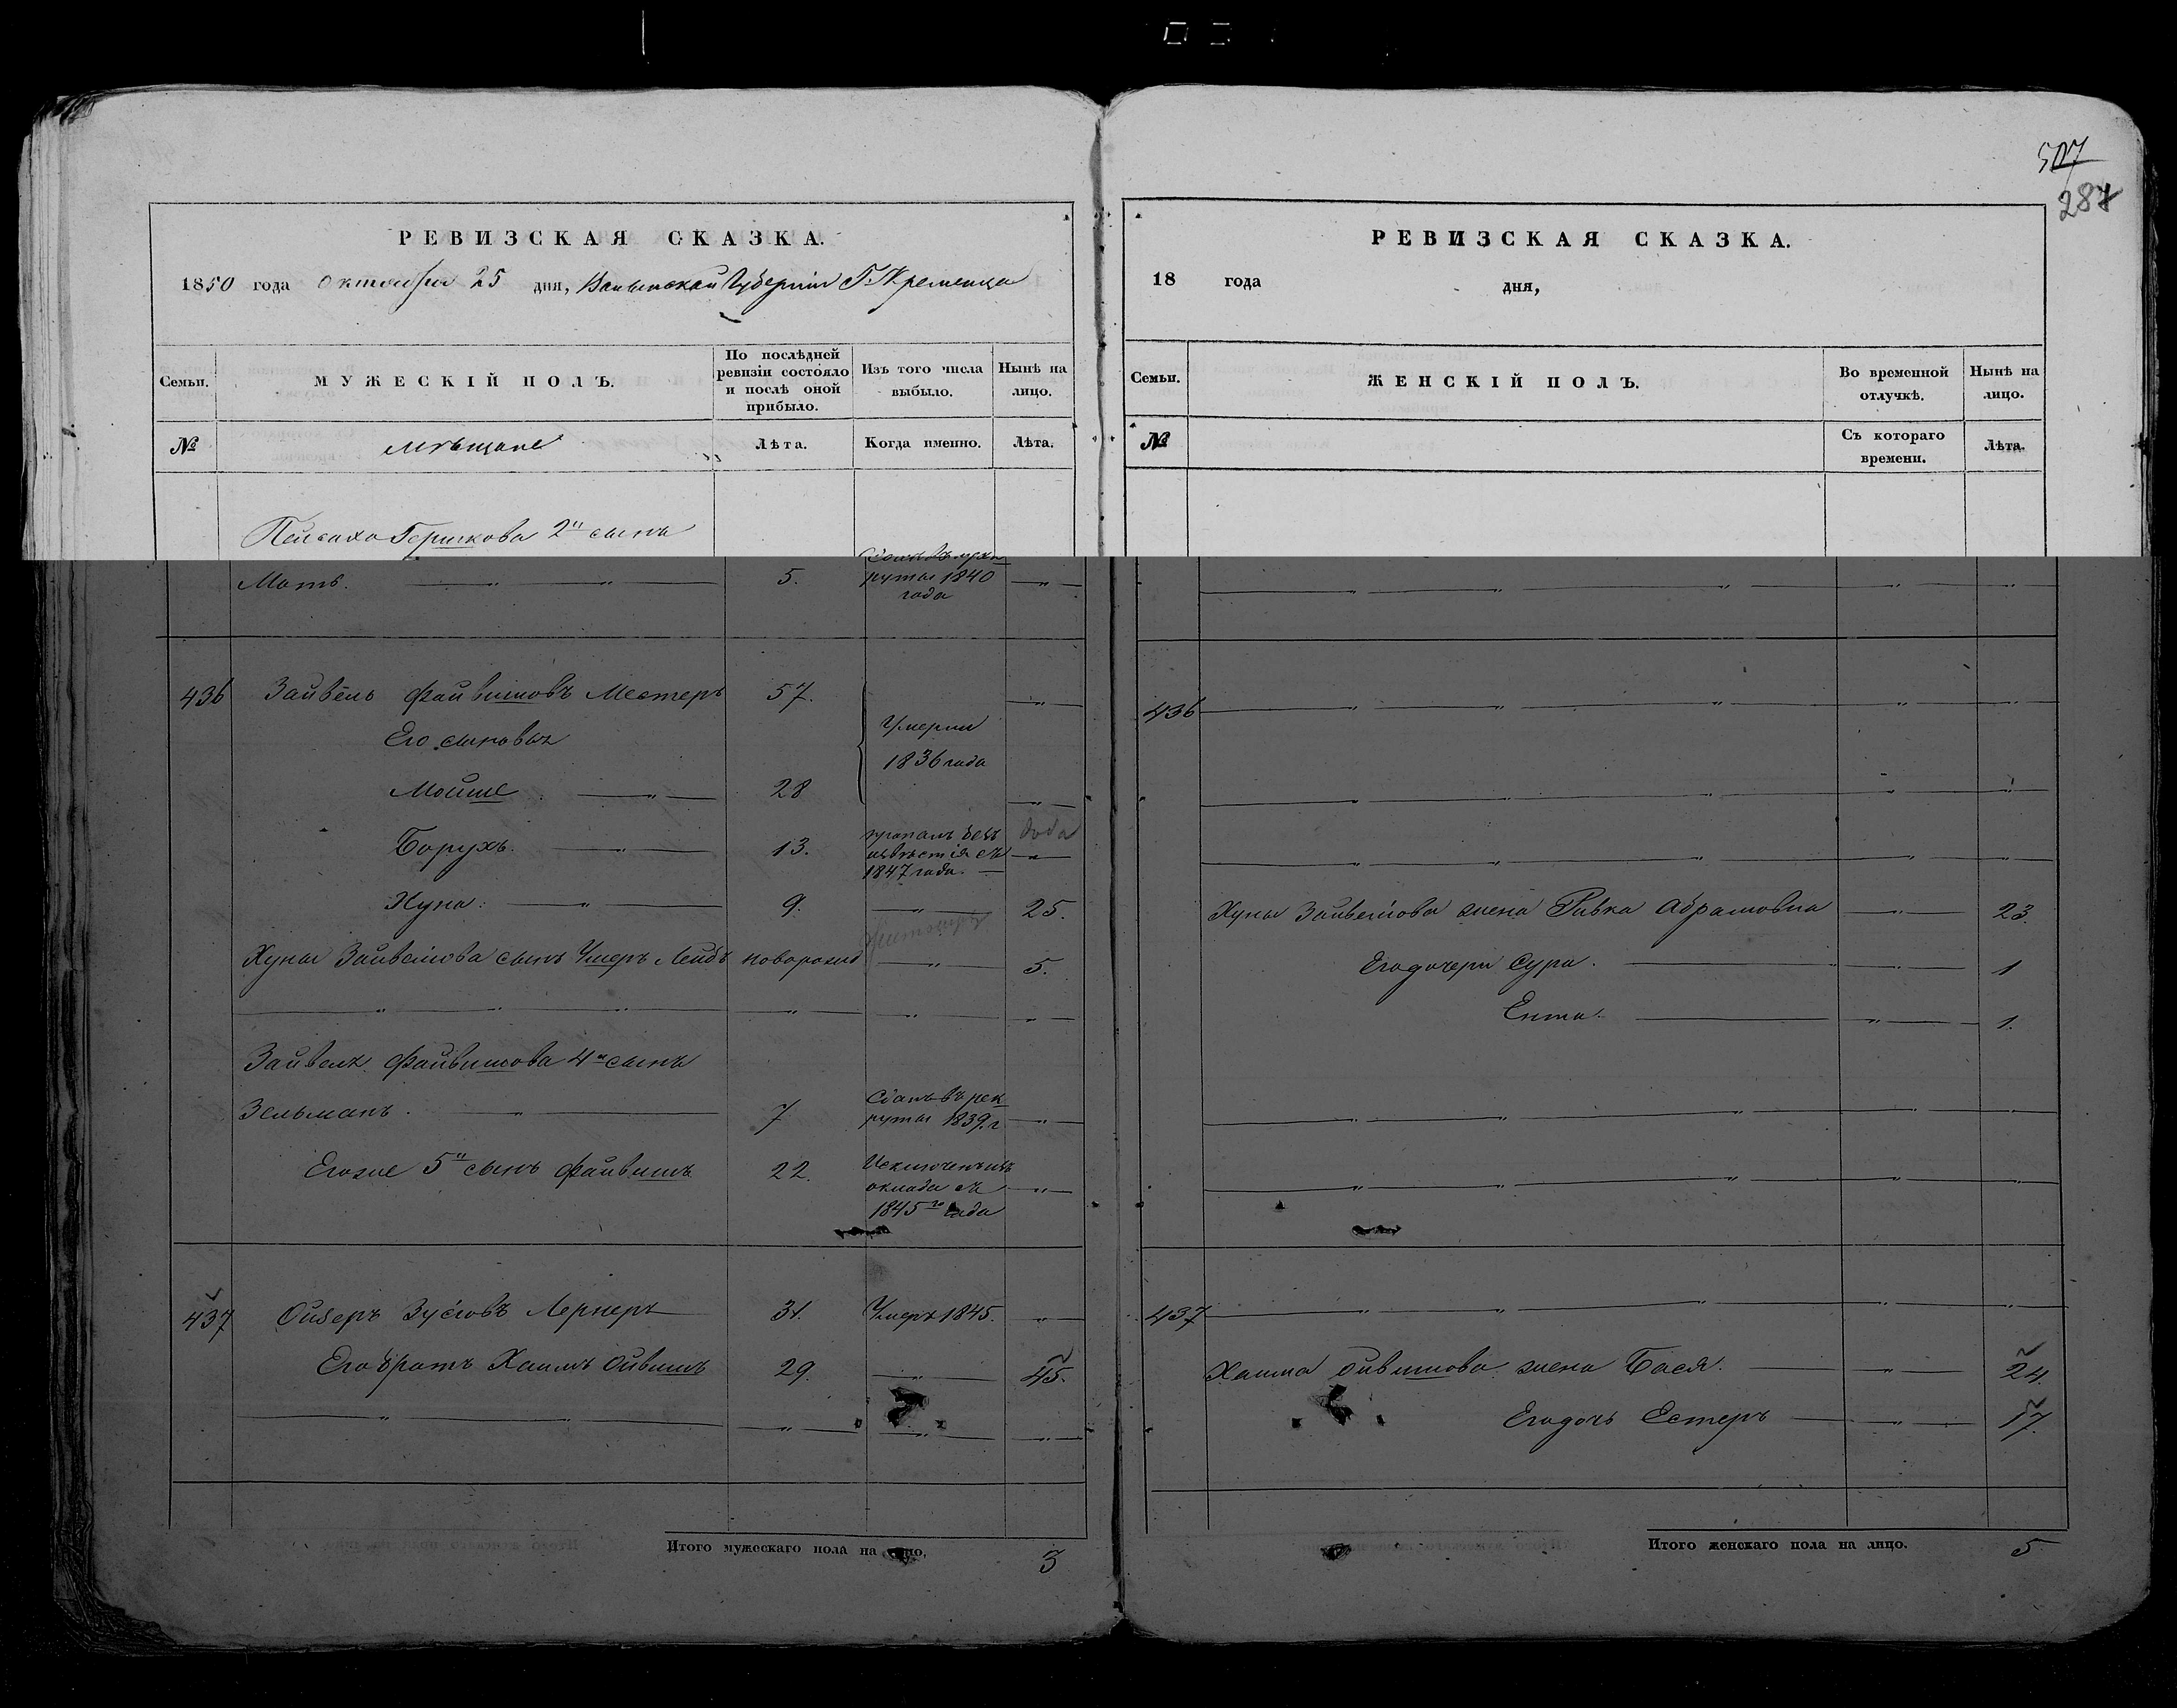 507
287
РЕВИЗСКАЯ СКАЗКА.
1850 года октября 25 дня, Волынской Губерніи Г. Кременца
Семьи. МУЖЕСКІЙ ПОЛЪ. По послѣдней ревизіи состояло и послѣ оной прибыло. Изъ того числа выбыло. Нынѣ на лицо.
№ мѣщане Лѣта. Когда именно. Лѣта.
Пейсаха Гершкова 2й сынъ
Мотъ. 5. Сданъ въ рекруты 1840 года
436 Зайвель Файвишовъ Местеръ 57.
Его сыновья
Умерли
1836 года
Мойше 28
Борухъ. 13. пропалъ безъ извѣстія съ 1847 года.
Хуна. 9. 25.
Хуны Зайвелiова сынъ Умеръ Лейбъ новорожд 5.
Зайвеля Файвишова 4й сынъ
Зельманъ. 7 Сданъ въ рекруты 1839 г
Егоже 5й сынъ Файвишъ 22. Исключенъ изъ оклада съ 1845го года
437 Ойзеръ Зусіовъ Лернеръ 31. Умеръ 1845.
Его братъ Хаимъ Ойвишъ 29. 45.
Итого мужескаго пола на лицо. 3
РЕВИЗСКАЯ СКАЗКА.
18 года дня,
Семьи. ЖЕНСКІЙ ПОЛЪ. Во временной отлучкѣ. Нынѣ на лицо.
№ Съ котораго времени. Лѣта.
436
Хуны Зайвелiова жена Ривка Абрамовна 23.
Его дочери Сура. 1
Ента. 1.
437
Хаима Ойвишова жена Бася. 24.
Его дочь Естеръ 17.
Итого женскаго пола на лицо. 5